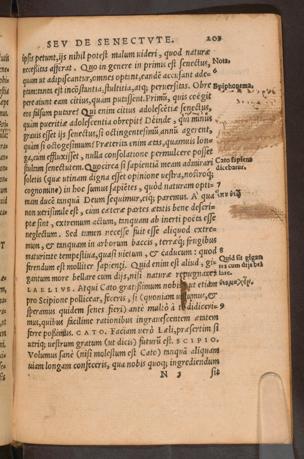 SEV DE SENECTVTE. 203
ipsis petunt, ijs nihil potest malum uideri, quod naturæ
necessitas afferat. Quo in genere in primis est senectus,
quam ut adipiscantur, omnes optant, eandē accusant ade-
ptam: tanta est incōstantia, stultitia, atq; peruersitas. Obre
pere aiunt eam citius, quam putassent. Primū, quis coëgit
eos falsum putare? Qui enim citius adolescētiæ senectus,
quàm pueritiæ adolescentia obrepit? Deinde, qui minus
grauis esset ijs senectus, si octingentesimū annū agerent,
quàm si octogesimum? Præterita enim ætas, quamuis lon-
ga, cum effluxisset, nulla consolatione permulcere posset
stultam senectutem. Quocirca si sapientiā meam admirari
soletis (quæ utinam digna esset opinione uestra, nostroq́;
cognomine) in hoc sumus sapiētes, quòd naturam opti-
mam ducē tanquā Deum sequimur, eiq; paremus. A qua
non uerisimile est, cum cæteræ partes ætatis bene descri-
ptæ sint, extremum actum, tanquam ab inerti poëta esse
neglectum. Sed tamen necesse fuit esse aliquod extre-
mum, & tanquam in arborum baccis, terræq́; frugibus
maturitate tempestiua, quasi uietum, & caducum: quod
ferendum est molliter sapienti. Quid enim est aliud, gi-
gantum more bellare cum dijs, nisi naturæ repugnare
LAELIVS. Atqui Cato gratissimum nobis, ut etiam
pro Scipione pollicear, feceris, si (quoniam uolumus, &
speramus quidem senes fieri) antè multò à te didiceri-
mus, quibus facillime rationibus ingrauescentem ætatem
ferre possimus. CATO. Faciam uerò Læli, præsertim si
utriq; uestrum gratum (ut dicis) futurū est. SCIPIO.
Volumus sanè (nisi molestum est Cato) tanquā aliquam
uiam longam confeceris, qua nobis quoq; ingrediendum
N 3 sit
6
Nota.
Epiphonema.
7
Cato sapiens
dicebatur.
8
9
Quid sit gigan
tū more cum dijs bel
lare.